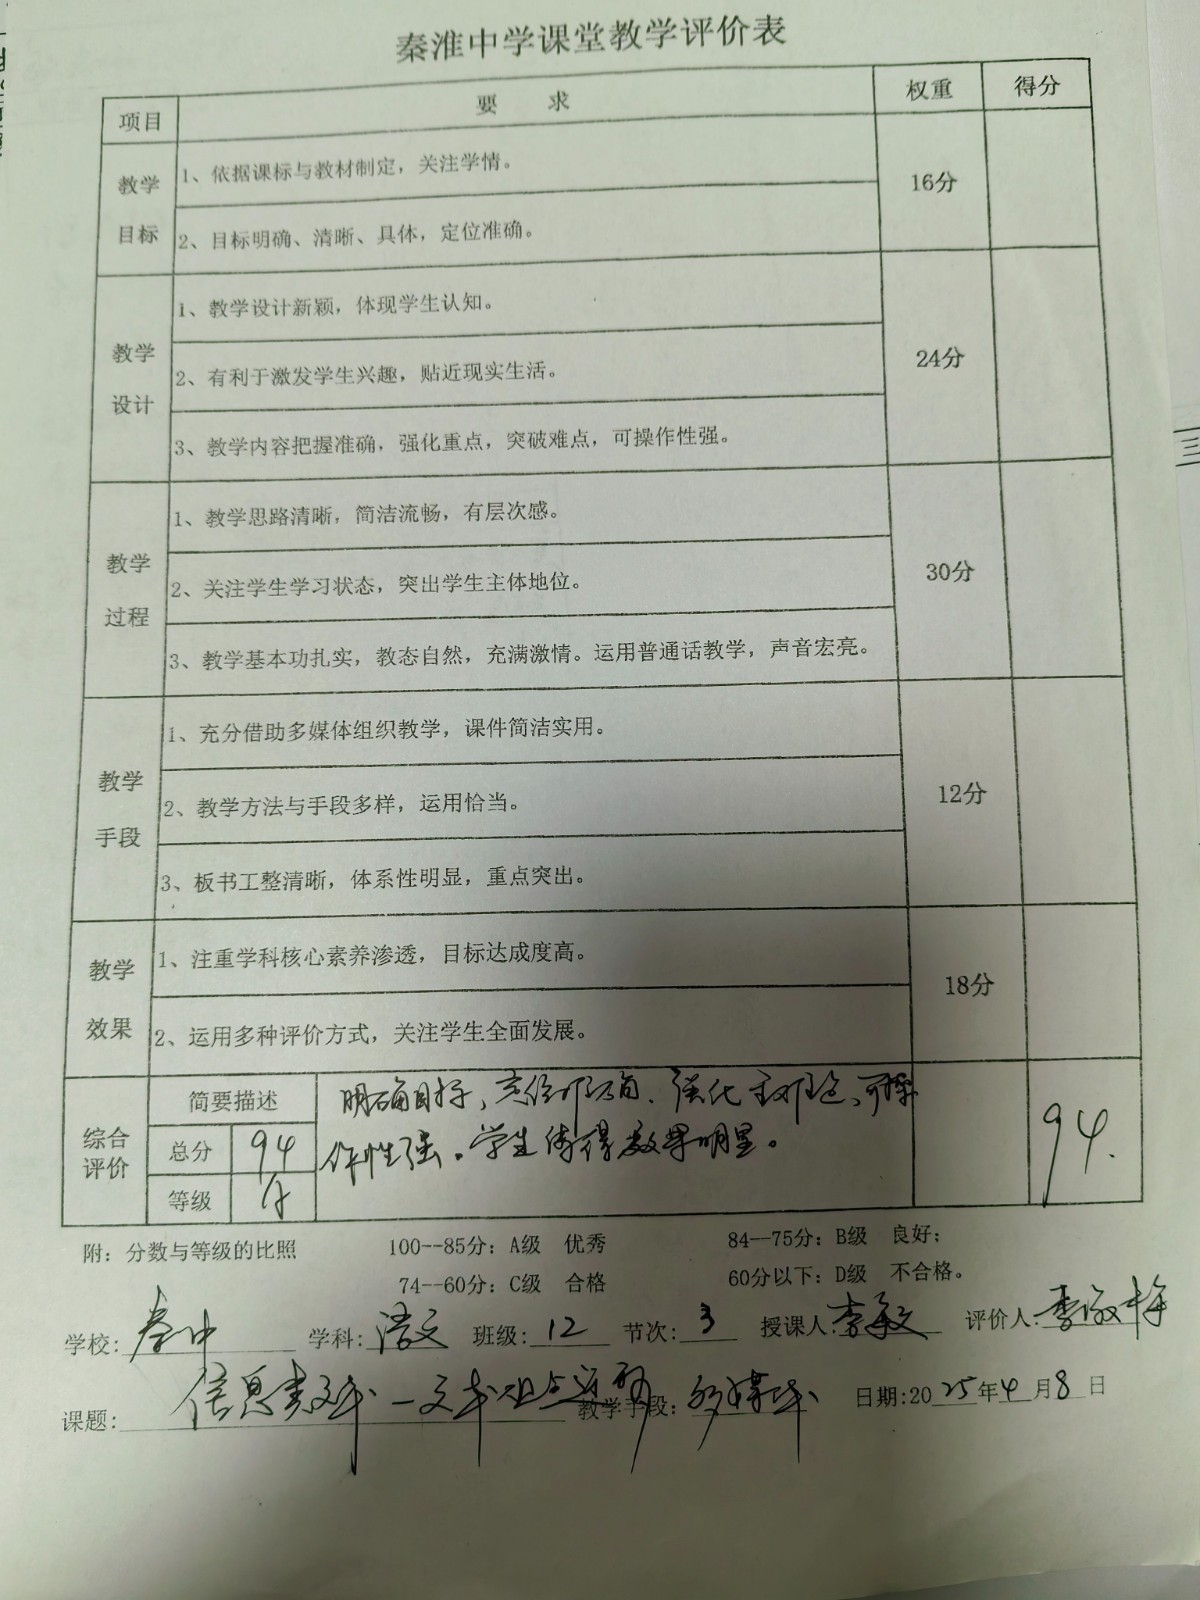 秦淮中学课堂教学评价表
项目 要 求 权重 得分
教学目标
1、依据课标与教材制定，关注学情。
2、目标明确、清晰、具体，定位准确。
16分
教学设计
1、教学设计新颖，体现学生认知。
2、有利于激发学生兴趣，贴近现实生活。
3、教学内容把握准确，强化重点，突破难点，可操作性强。
24分
教学过程
1、教学思路清晰，简洁流畅，有层次感。
2、关注学生学习状态，突出学生主体地位。
3、教学基本功扎实，教态自然，充满激情。运用普通话教学，声音宏亮。
30分
教学手段
1、充分借助多媒体组织教学，课件简洁实用。
2、教学方法与手段多样，运用恰当。
3、板书工整清晰，体系性明显，重点突出。
12分
教学效果
1、注重学科核心素养渗透，目标达成度高。
2、运用多种评价方式，关注学生全面发展。
18分
综合评价
简要描述
明确目标、强化、可操
作性强。学生效果明显。
总分 94
等级 A
94.
附：分数与等级的比照 100--85分：A级 优秀 84--75分：B级 良好；
74--60分：C级 合格 60分以下：D级 不合格。
学校: 秦中 学科: 语文 班级: 12 节次: 3 授课人: 李 评价人: 李
课题: 信息类文本 教学手段: 多媒体 日期:2025年4月8日